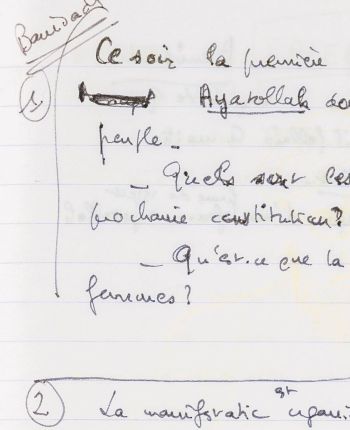 Banisadr
Ce soir la première
1 Ayatollah
peuple.
– Quels sont les
prochaine constitution?
– Qu'est-ce que la
femmes?
2 La est